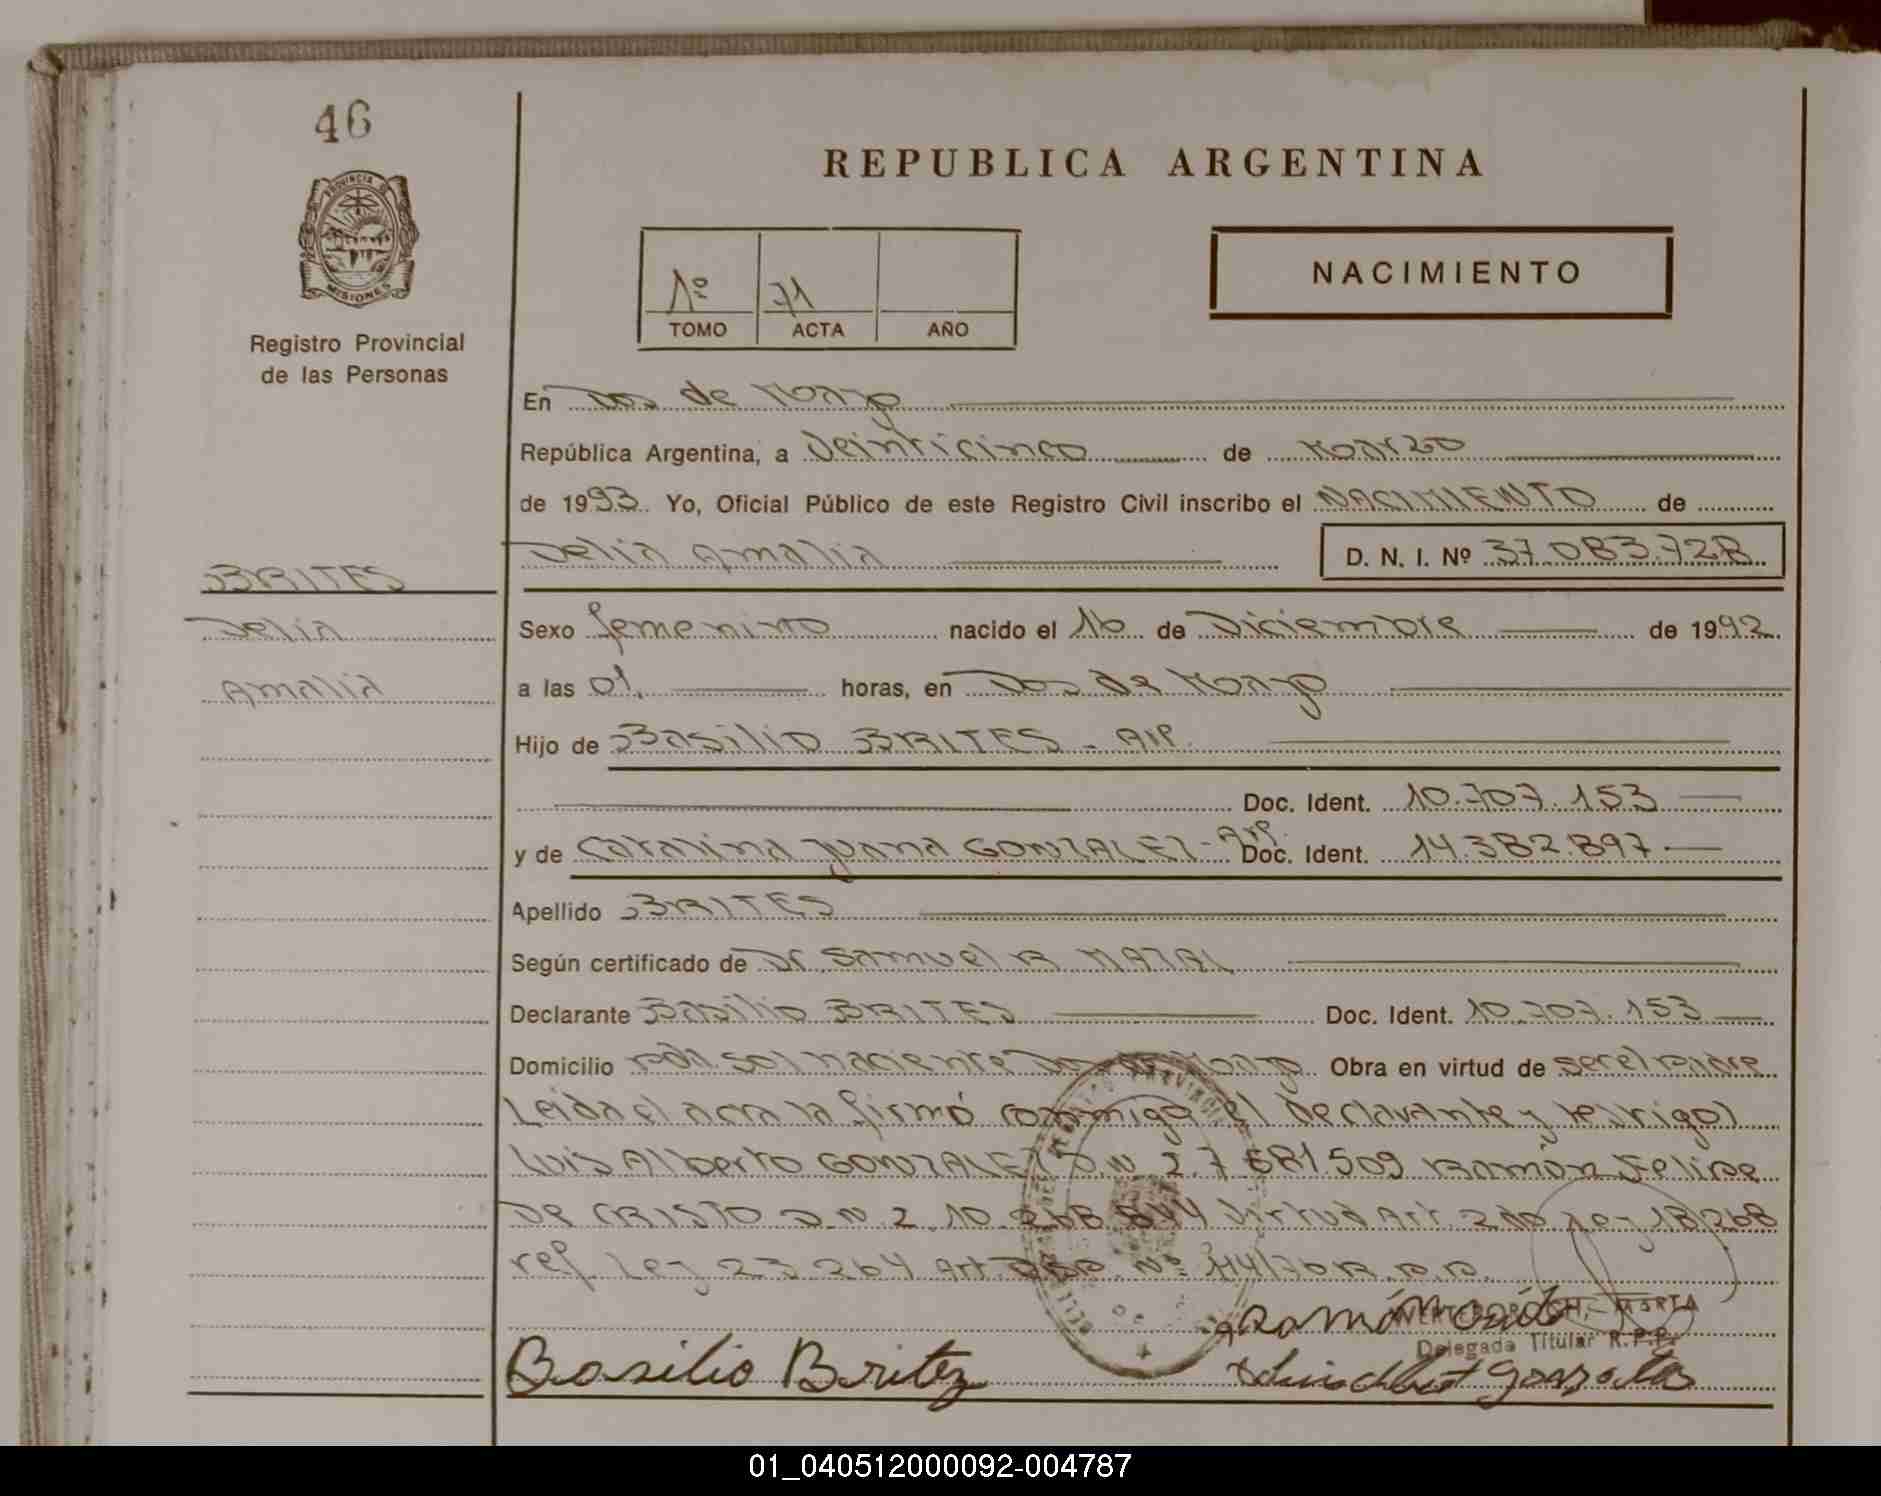 46
PROVINCIA DE
MISIONES
Registro Provincial
de las Personas
REPUBLICA ARGENTINA
1º 71
TOMO ACTA AÑO
NACIMIENTO
En Dos de Mayo
República Argentina, a Veinticinco de Marzo
de 1993. Yo, Oficial Público de este Registro Civil inscribo el NACIMIENTO de
Delia Amalia D. N. I. Nº 37.083.728
BRITES
Delia
Amalia
Sexo femenino nacido el 16 de Diciembre de 1992
a las 01. horas, en Dos de Mayo
Hijo de Basilio BRITES - Arp.
Doc. Ident. 10.707.153
y de Catalina Juana GONZALEZ - Arp. Doc. Ident. 14.382.897
Apellido BRITES
Según certificado de Dr. Samuel R
Declarante Basilio BRITES Doc. Ident. 10.707.153
Domicilio Pda. Sol naciente Dos de Mayo Obra en virtud de ser el padre
Leida el acta la firmó conmigo el declarante y testigos
Luis Alberto GONZALEZ D.N.I. 7.681.509 Ramón Felipe
De CRISTO D.N.I. 10.268.844 Virtud Art. 2do Ley 18268
ref. Ley 23264 Art. Disp. Nº R.P.P.
Ramón
MARTA
Delegada Titular R.P.P.
Basilio Britez
01_040512000092-004787